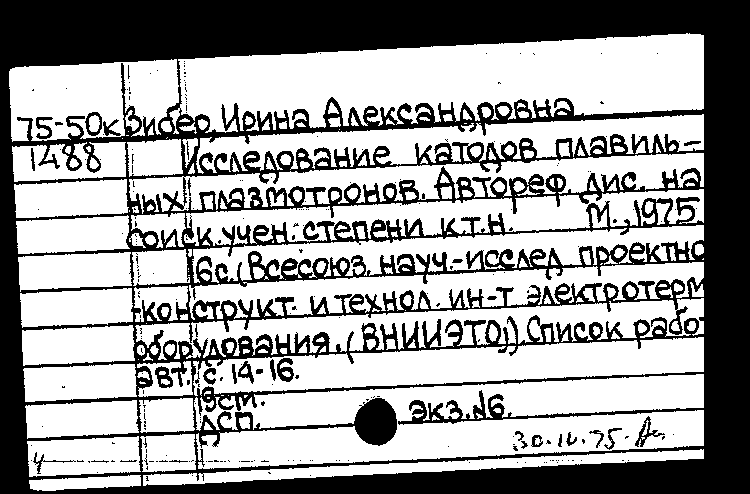 75-50к Зибер, Ирина Александровна.
1488 Исследование катодов плавиль-
ных плазмотронов. Автореф. дис. на
соиск. учен. степени к.т.н. М., 1975.
16с. (Всесоюз. науч.-исслед. проектно
-конструкт. и технол. ин-т электротерм
оборудования. (ВНИИЭТО)). Список рабо
авт. с. 14-16.
ДСП. Экз. №6.
4